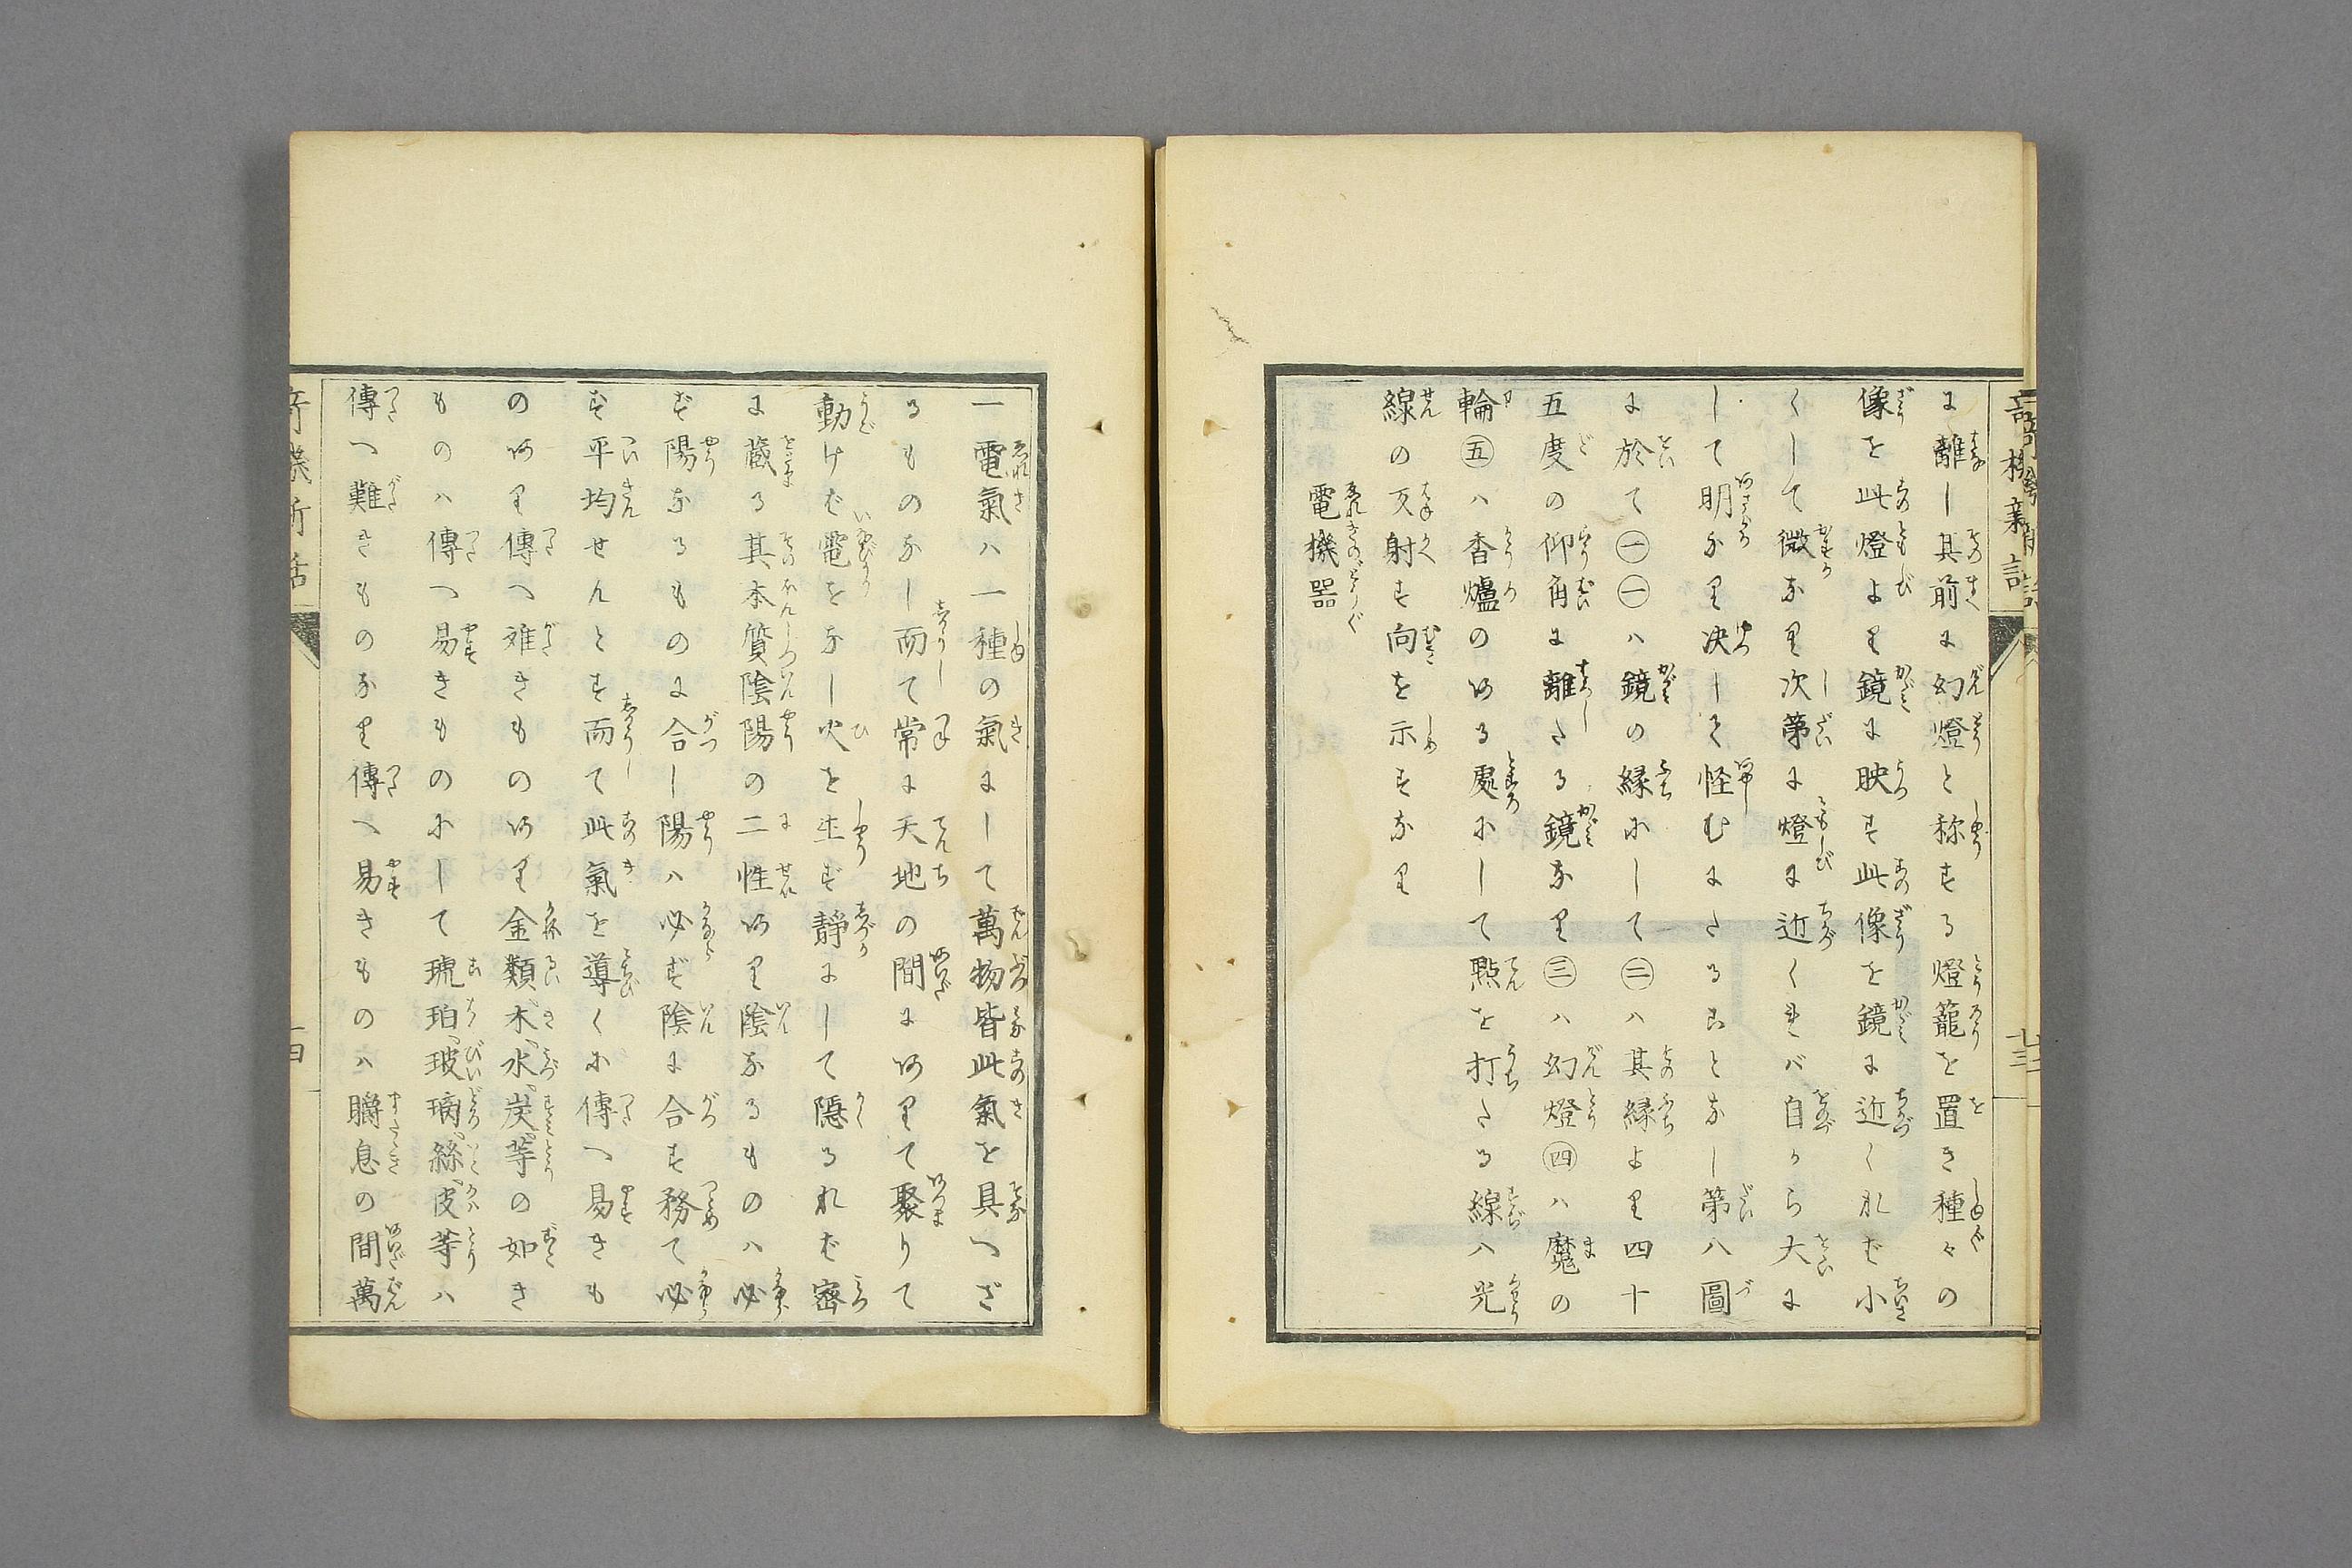 奇機新話
に離し其前に幻燈と称する燈籠を置き種々の
像を此燈より鏡に映す此像を鏡に近くれば小
くして微なり次第に燈に近くれバ自から大に
して明かり决して怪むにたることなし第八圖
に於て㊀㊀ハ鏡の縁にして㊁ハ其縁より四十
五度の仰角に離たる鏡なり㊂ハ幻燈㊃ハ魔の
輪㊄ハ香爐のある處にして點を打たる線ハ光
線の反射す向を示すなり
電機器
一電氣ハ一種の氣にして萬物皆此氣を具へざ
るものなし而て常に天地の間にありて聚りて
動けば電をなし火を生ず静にして隠るれば密
に蔵る其本質陰陽の二性あり陰なるものハ必
ず陽なるものに合し陽ハ必ず陰に合す務て必
ず平均せんとす而て此氣を導くに傳へ易きも
のあり傳へ难きものあり金類、木、水、炭、等の如き
ものハ傳へ易きものにして琥珀、玻璃、絲、皮等ハ
傳へ難きものなり傳へ易きものハ瞬息の間萬